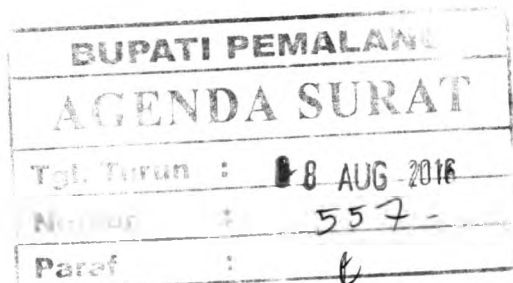 BUPATI PEMALANG
AGENDA SURAT
Tgl. Turun : 8 AUG 2016
Nomor : 557-
Paraf :